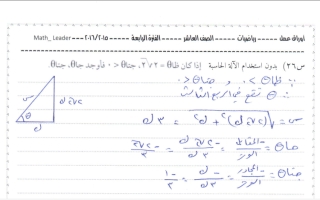 أوراق عمل ---- رياضيات ---- الصف العاشر ---- الفترة الرابعة ---- ٢٠١٦/٢٠١٥ Math_ Leader
س٢٦) بدون استخدام الآلة الحاسبة إذا كان ظاθ = ٢√٢ ، جتاθ < ٠ فأوجد جاθ، جتاθ.
∵ ظاθ > ٠ و جتاθ < ٠
∴ θ تقع في الربع الثالث
س = √((٢√٢ك)² + ك²) = ٣ك
جاθ = -المقابل / الوتر = -٢√٢ك / ٣ك = -٢√٢ / ٣
جتاθ = -المجاور / الوتر = -ك / ٣ك = -١ / ٣
س
θ
ك
٢√٢ك